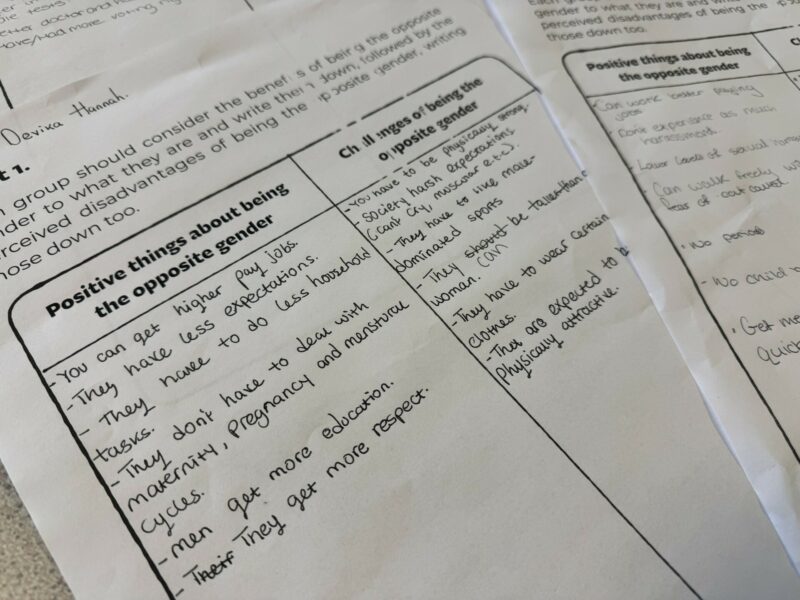 have/had more voting
Devika Hannah.
t 1.
group should consider the benefits of being the opposite
nder to what they are and write them down, followed by the
erceived disadvantages of being the opposite gender, writing
hose down too.
Positive things about being
the opposite gender
- You can get higher pay jobs.
- They have less expectations.
- They have to do less household
tasks.
- They don't have to deal with
maternity, pregnancy and menstural
cycles.
- men get more education.
- Their They get more respect.
Challenges of being the
opposite gender
- You have to be physically strong.
society harsh expectations
(can't cry, muscular etc).
- They have to like male
dominated sports
- They should be taller than a
woman. can
- They have to wear certain
clothes.
- They are expected to be
physically attractive.
gender to what they are and
perceived disadvantages of being the
those down too.
Positive things about being
the opposite gender
Can work better paying
jobs
- Don't experience as much
harassment.
- Lower levels of sexual
Can walk freely
fear of cat called
• No periods
- No child
• Get
quick